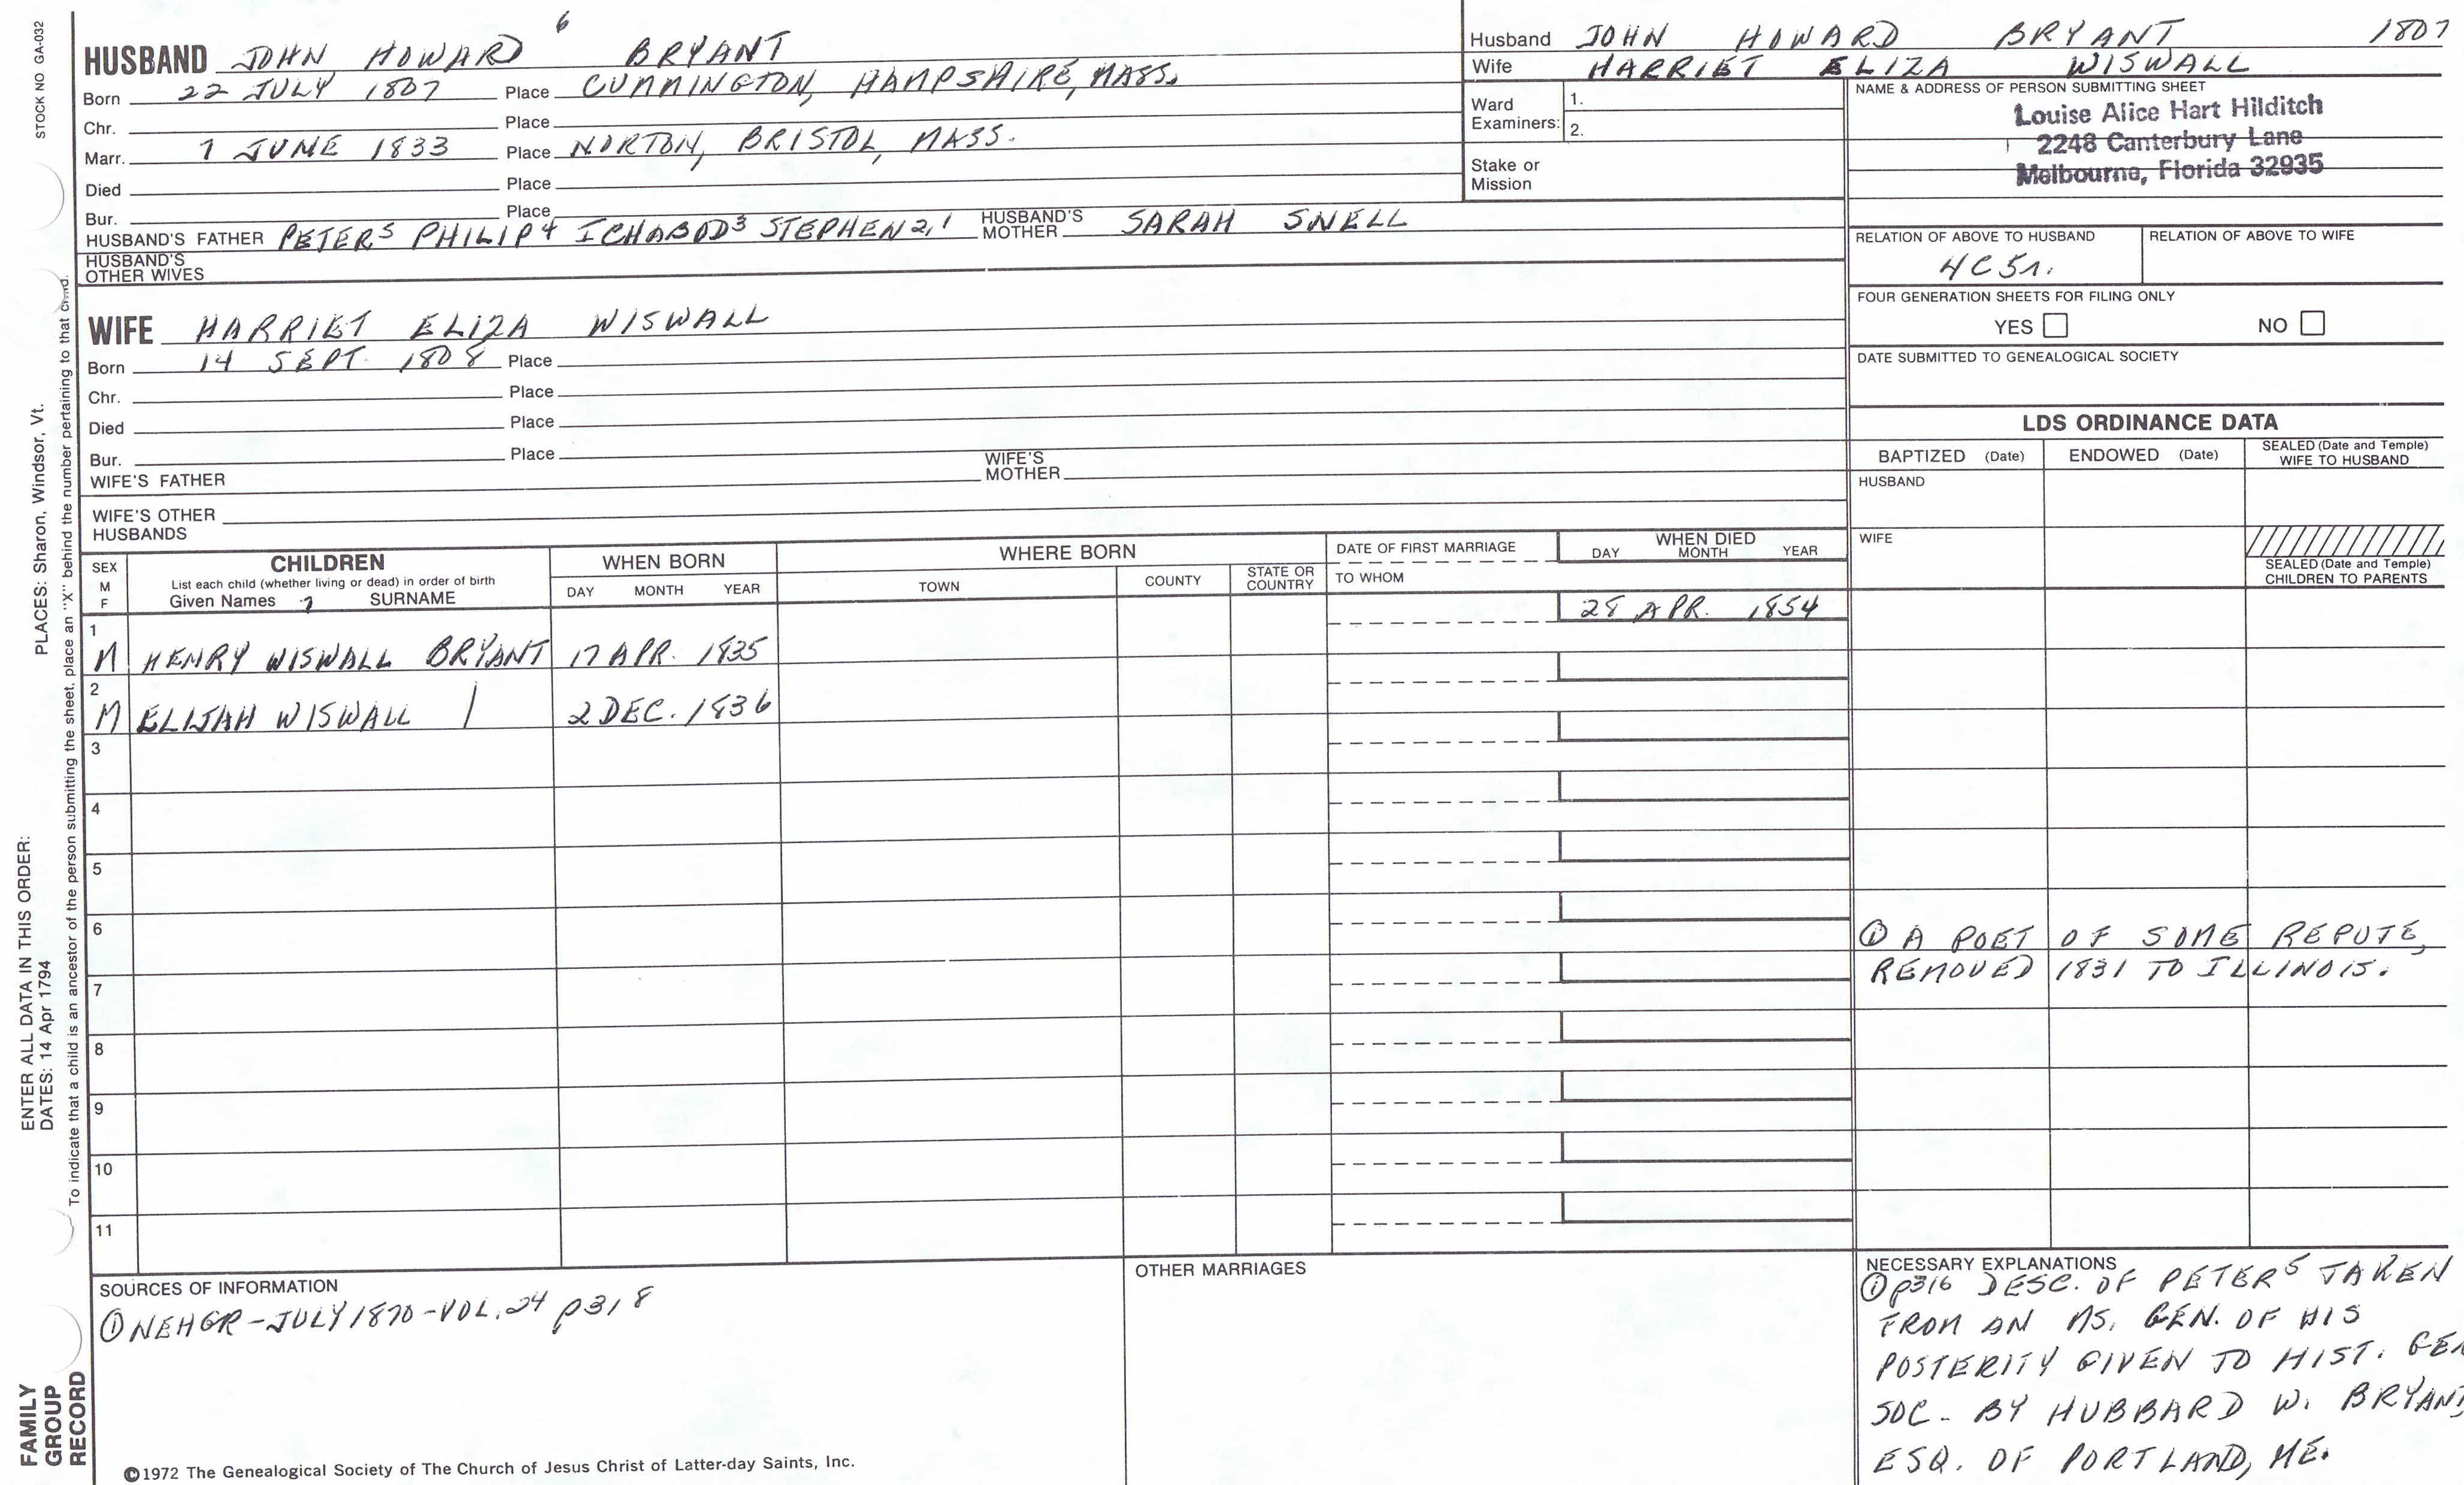 STOCK NO GA-032
PLACES: Sharon, Windsor, Vt.
ENTER ALL DATA IN THIS ORDER:
DATES: 14 Apr 1794
To indicate that a child is an ancestor of the person submitting the sheet, place an "X" behind the number pertaining to that child.
FAMILY
GROUP
RECORD
HUSBAND JOHN HOWARD 6 BRYANT
Born 22 JULY 1807 Place CUMMINGTON, HAMPSHIRE, MASS.
Chr. Place
Marr. 7 JUNE 1833 Place NORTON, BRISTOL, MASS.
Died Place
Bur. Place
HUSBAND'S FATHER PETER5 PHILIP4 ICHABOD3 STEPHEN2,1 HUSBAND'S MOTHER SARAH SNELL
HUSBAND'S
OTHER WIVES
WIFE HARRIET ELIZA WISWALL
Born 14 SEPT. 1808 Place
Chr. Place
Died Place
Bur. Place
WIFE'S FATHER WIFE'S MOTHER
WIFE'S OTHER
HUSBANDS
Husband JOHN HOWARD BRYANT 1807
Wife HARRIET ELIZA WISWALL
Ward
Examiners: 1.
2.
Stake or
Mission
NAME & ADDRESS OF PERSON SUBMITTING SHEET
Louise Alice Hart Hilditch
2248 Canterbury Lane
Melbourne, Florida 32935
RELATION OF ABOVE TO HUSBAND RELATION OF ABOVE TO WIFE
4C5r.
FOUR GENERATION SHEETS FOR FILING ONLY
YES NO
DATE SUBMITTED TO GENEALOGICAL SOCIETY
LDS ORDINANCE DATA
BAPTIZED (Date) ENDOWED (Date) SEALED (Date and Temple)
WIFE TO HUSBAND
HUSBAND
WIFE
SEALED (Date and Temple)
CHILDREN TO PARENTS
SEX
M
F
CHILDREN
List each child (whether living or dead) in order of birth
Given Names 7 SURNAME
WHEN BORN
DAY MONTH YEAR
WHERE BORN
TOWN COUNTY STATE OR COUNTRY
DATE OF FIRST MARRIAGE
TO WHOM
WHEN DIED
DAY MONTH YEAR
1 28 APR. 1854
M HENRY WISWALL BRYANT 17 APR. 1835
2
M ELIJAH WISWALL | 2 DEC. 1836
3
4
5
6
7
8
9
10
11
① A POET OF SOME REPUTE,
REMOVED 1831 TO ILLINOIS.
SOURCES OF INFORMATION
① NEHGR-JULY 1870-VOL. 24 p318
OTHER MARRIAGES
NECESSARY EXPLANATIONS
① p316 DESC. OF PETER5 TAKEN
FROM AN MS. GEN. OF HIS
POSTERITY GIVEN TO HIST. GEN
SOC. BY HUBBARD W. BRYANT,
ESQ. OF PORTLAND, ME.
©1972 The Genealogical Society of The Church of Jesus Christ of Latter-day Saints, Inc.